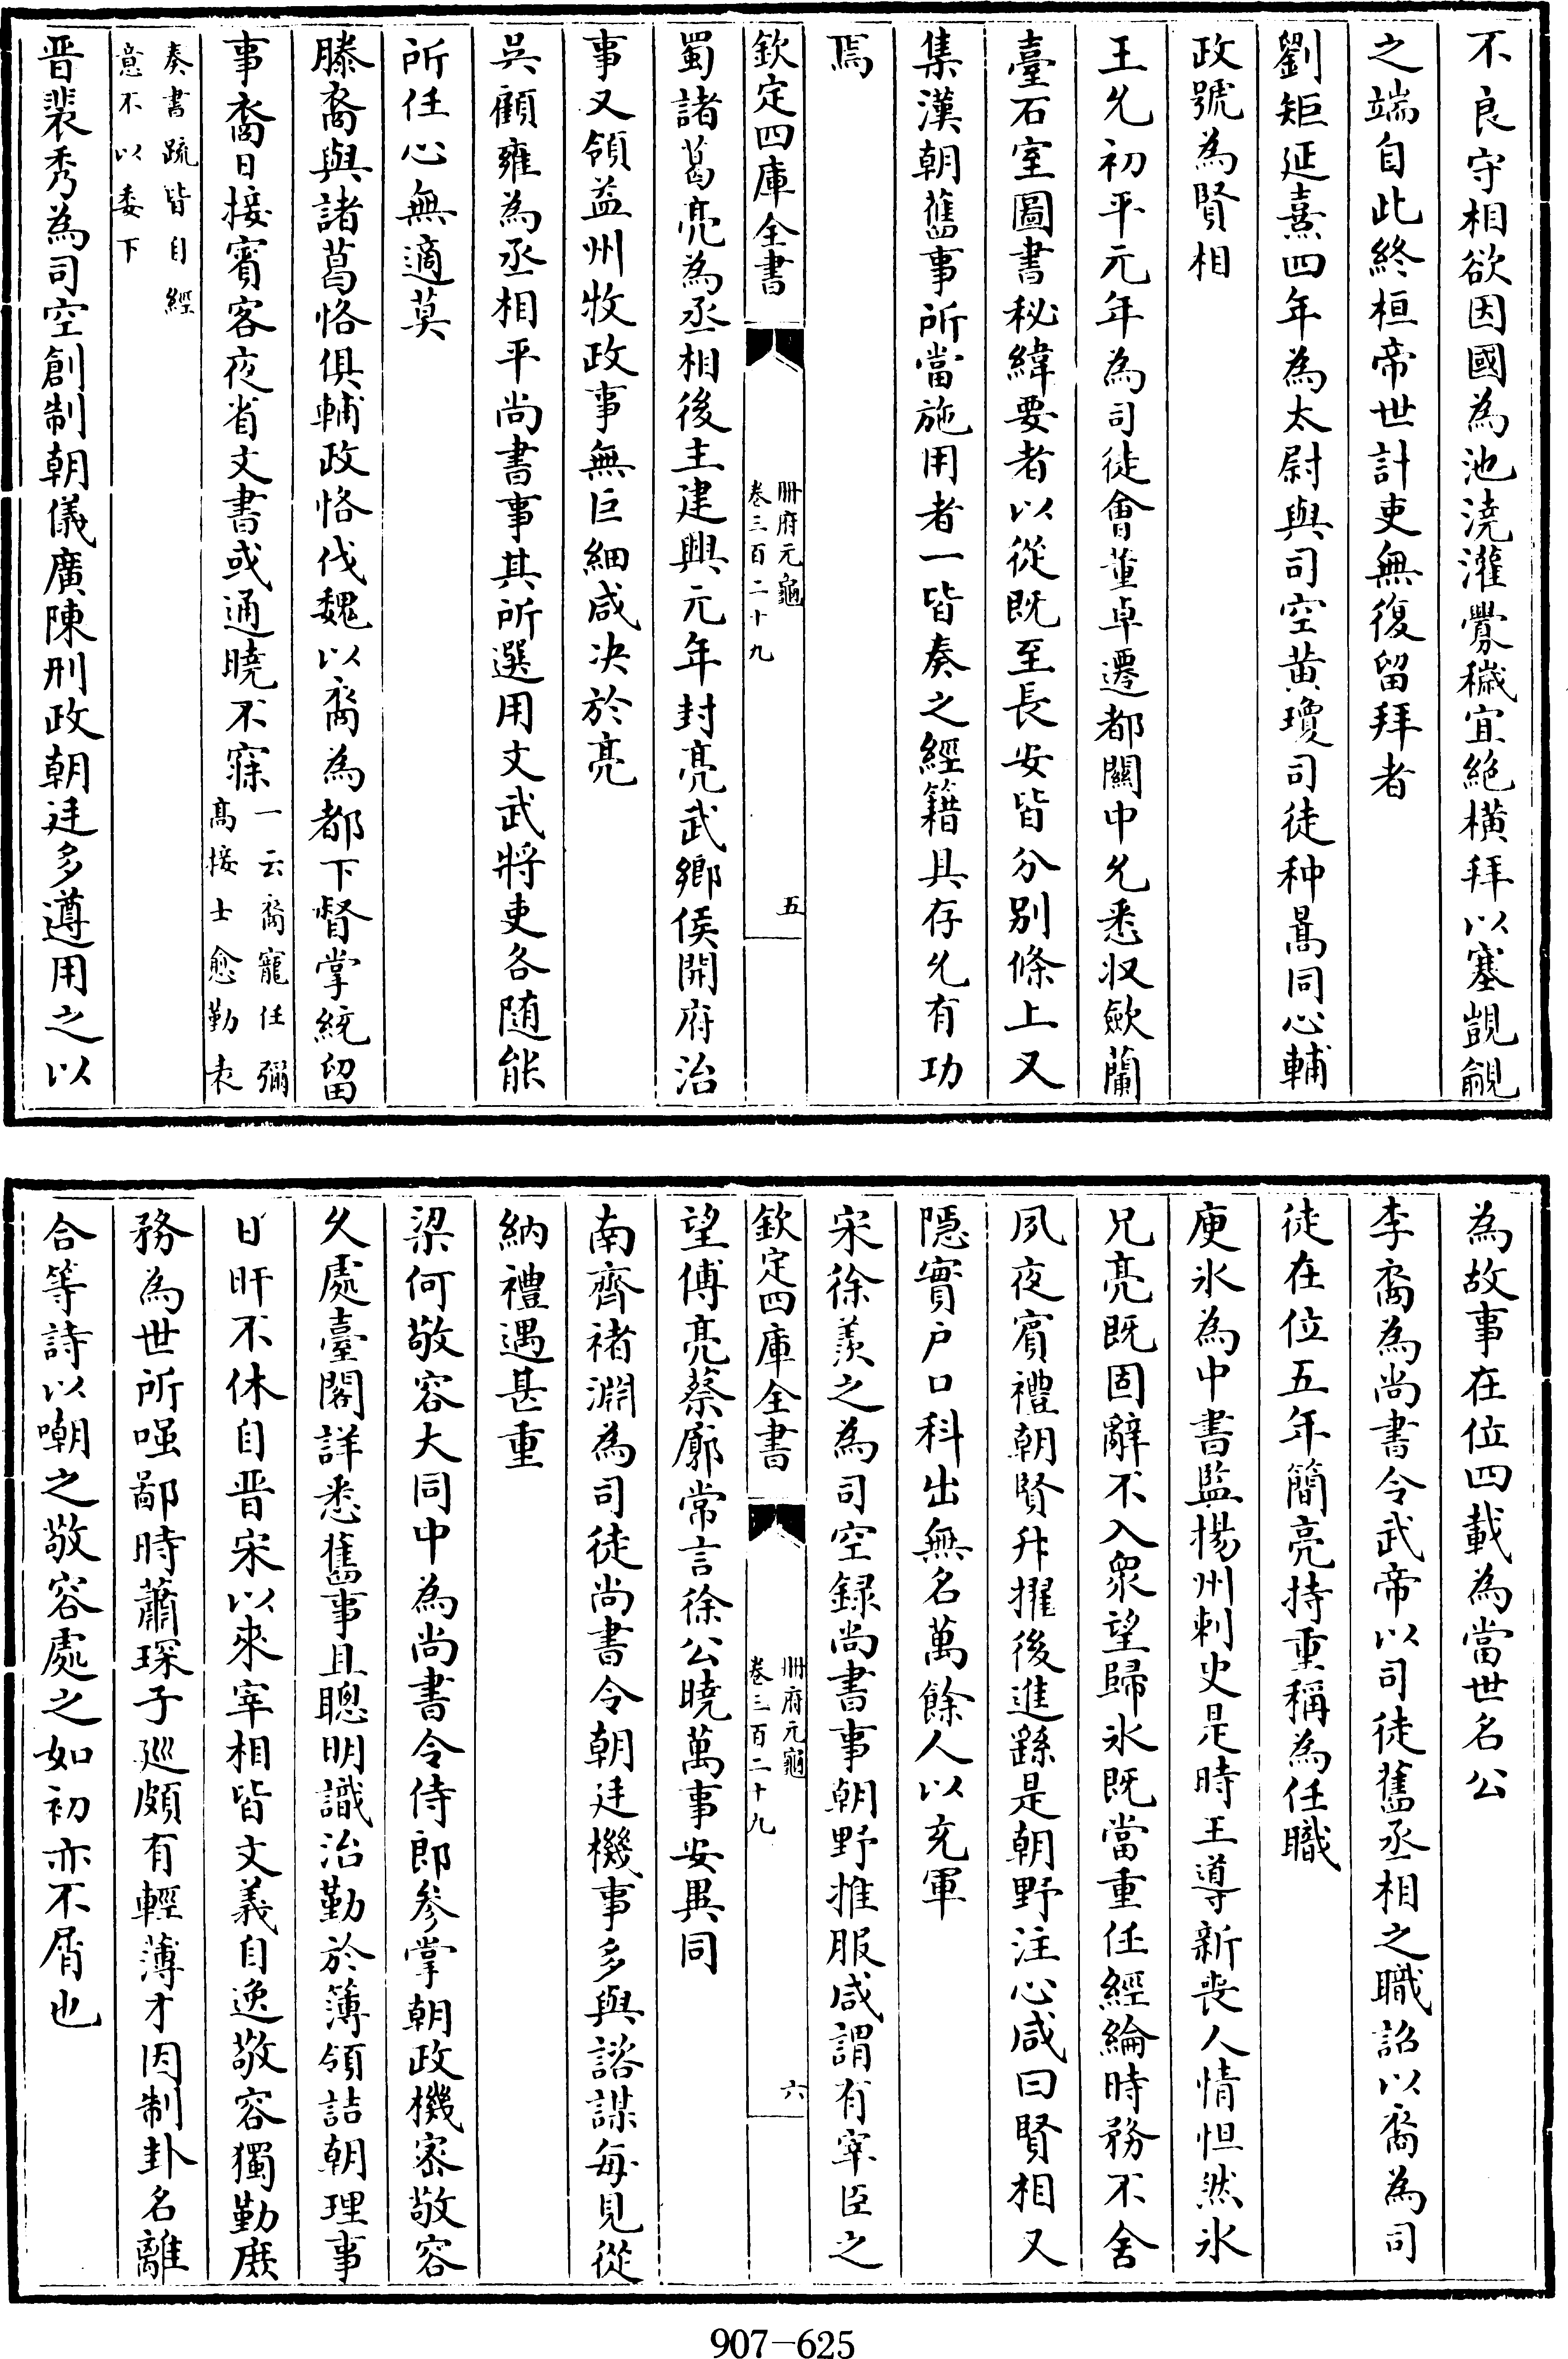 不良守相欲因國為池澆濯釁穢宜絶横拜以塞覬覦
之端自此終桓帝世計吏無復留拜者
劉矩延熹四年為太尉與司空黄瓊司徒种暠同心輔
政號為賢相
王允初平元年為司徒會董卓遷都關中允悉収歛蘭
臺石室圖書秘緯要者以從既至長安皆分别條上又
集漢朝舊事所當施用者一皆奏之經籍具存允有功
焉
欽定四庫全書
冊府元龜
卷三百二十九
五
蜀諸葛亮為丞相後主建興元年封亮武鄉侯開府治
事又領益州牧政事無巨細咸决於亮
吳顧雍為丞相平尚書事其所選用文武將吏各随能
所任心無適莫
滕裔與諸葛恪俱輔政恪伐魏以裔為都下督掌統留
事裔日接賓客夜省文書或通曉不寐
一云裔寵任彌
高接士愈勤表
奏書疏皆自經
意不以委下
晋裴秀為司空創制朝儀廣陳刑政朝廷多遵用之以
為故事在位四載為當世名公
李裔為尚書令武帝以司徒舊丞相之職詔以裔為司
徒在位五年簡亮持重稱為任職
庾氷為中書監揚州刺史是時王導新丧人情怛然氷
兄亮既固辭不入衆望歸氷既當重任經綸時務不舍
夙夜賓禮朝賢升擢後進繇是朝野注心咸曰賢相又
隱實户口科出無名萬餘人以充軍
宋徐羨之為司空録尚書事朝野推服咸謂有宰臣之
欽定四庫全書
冊府元龜
卷三百二十九
六
望傅亮蔡廓常言徐公曉萬事安異同
南齊褚淵為司徒尚書令朝廷機事多與諮謀每見從
納禮遇甚重
梁何敬容大同中為尚書令侍郎參掌朝政機宻敬容
久處臺閣詳悉舊事且聰明識治勤於簿領詰朝理事
日旰不休自晋宋以來宰相皆文義自逸敬容獨勤庶
務為世所嗤鄙時蕭琛子廵頗有輕薄才因制卦名離
合等詩以嘲之敬容處之如初亦不屑也
907-625